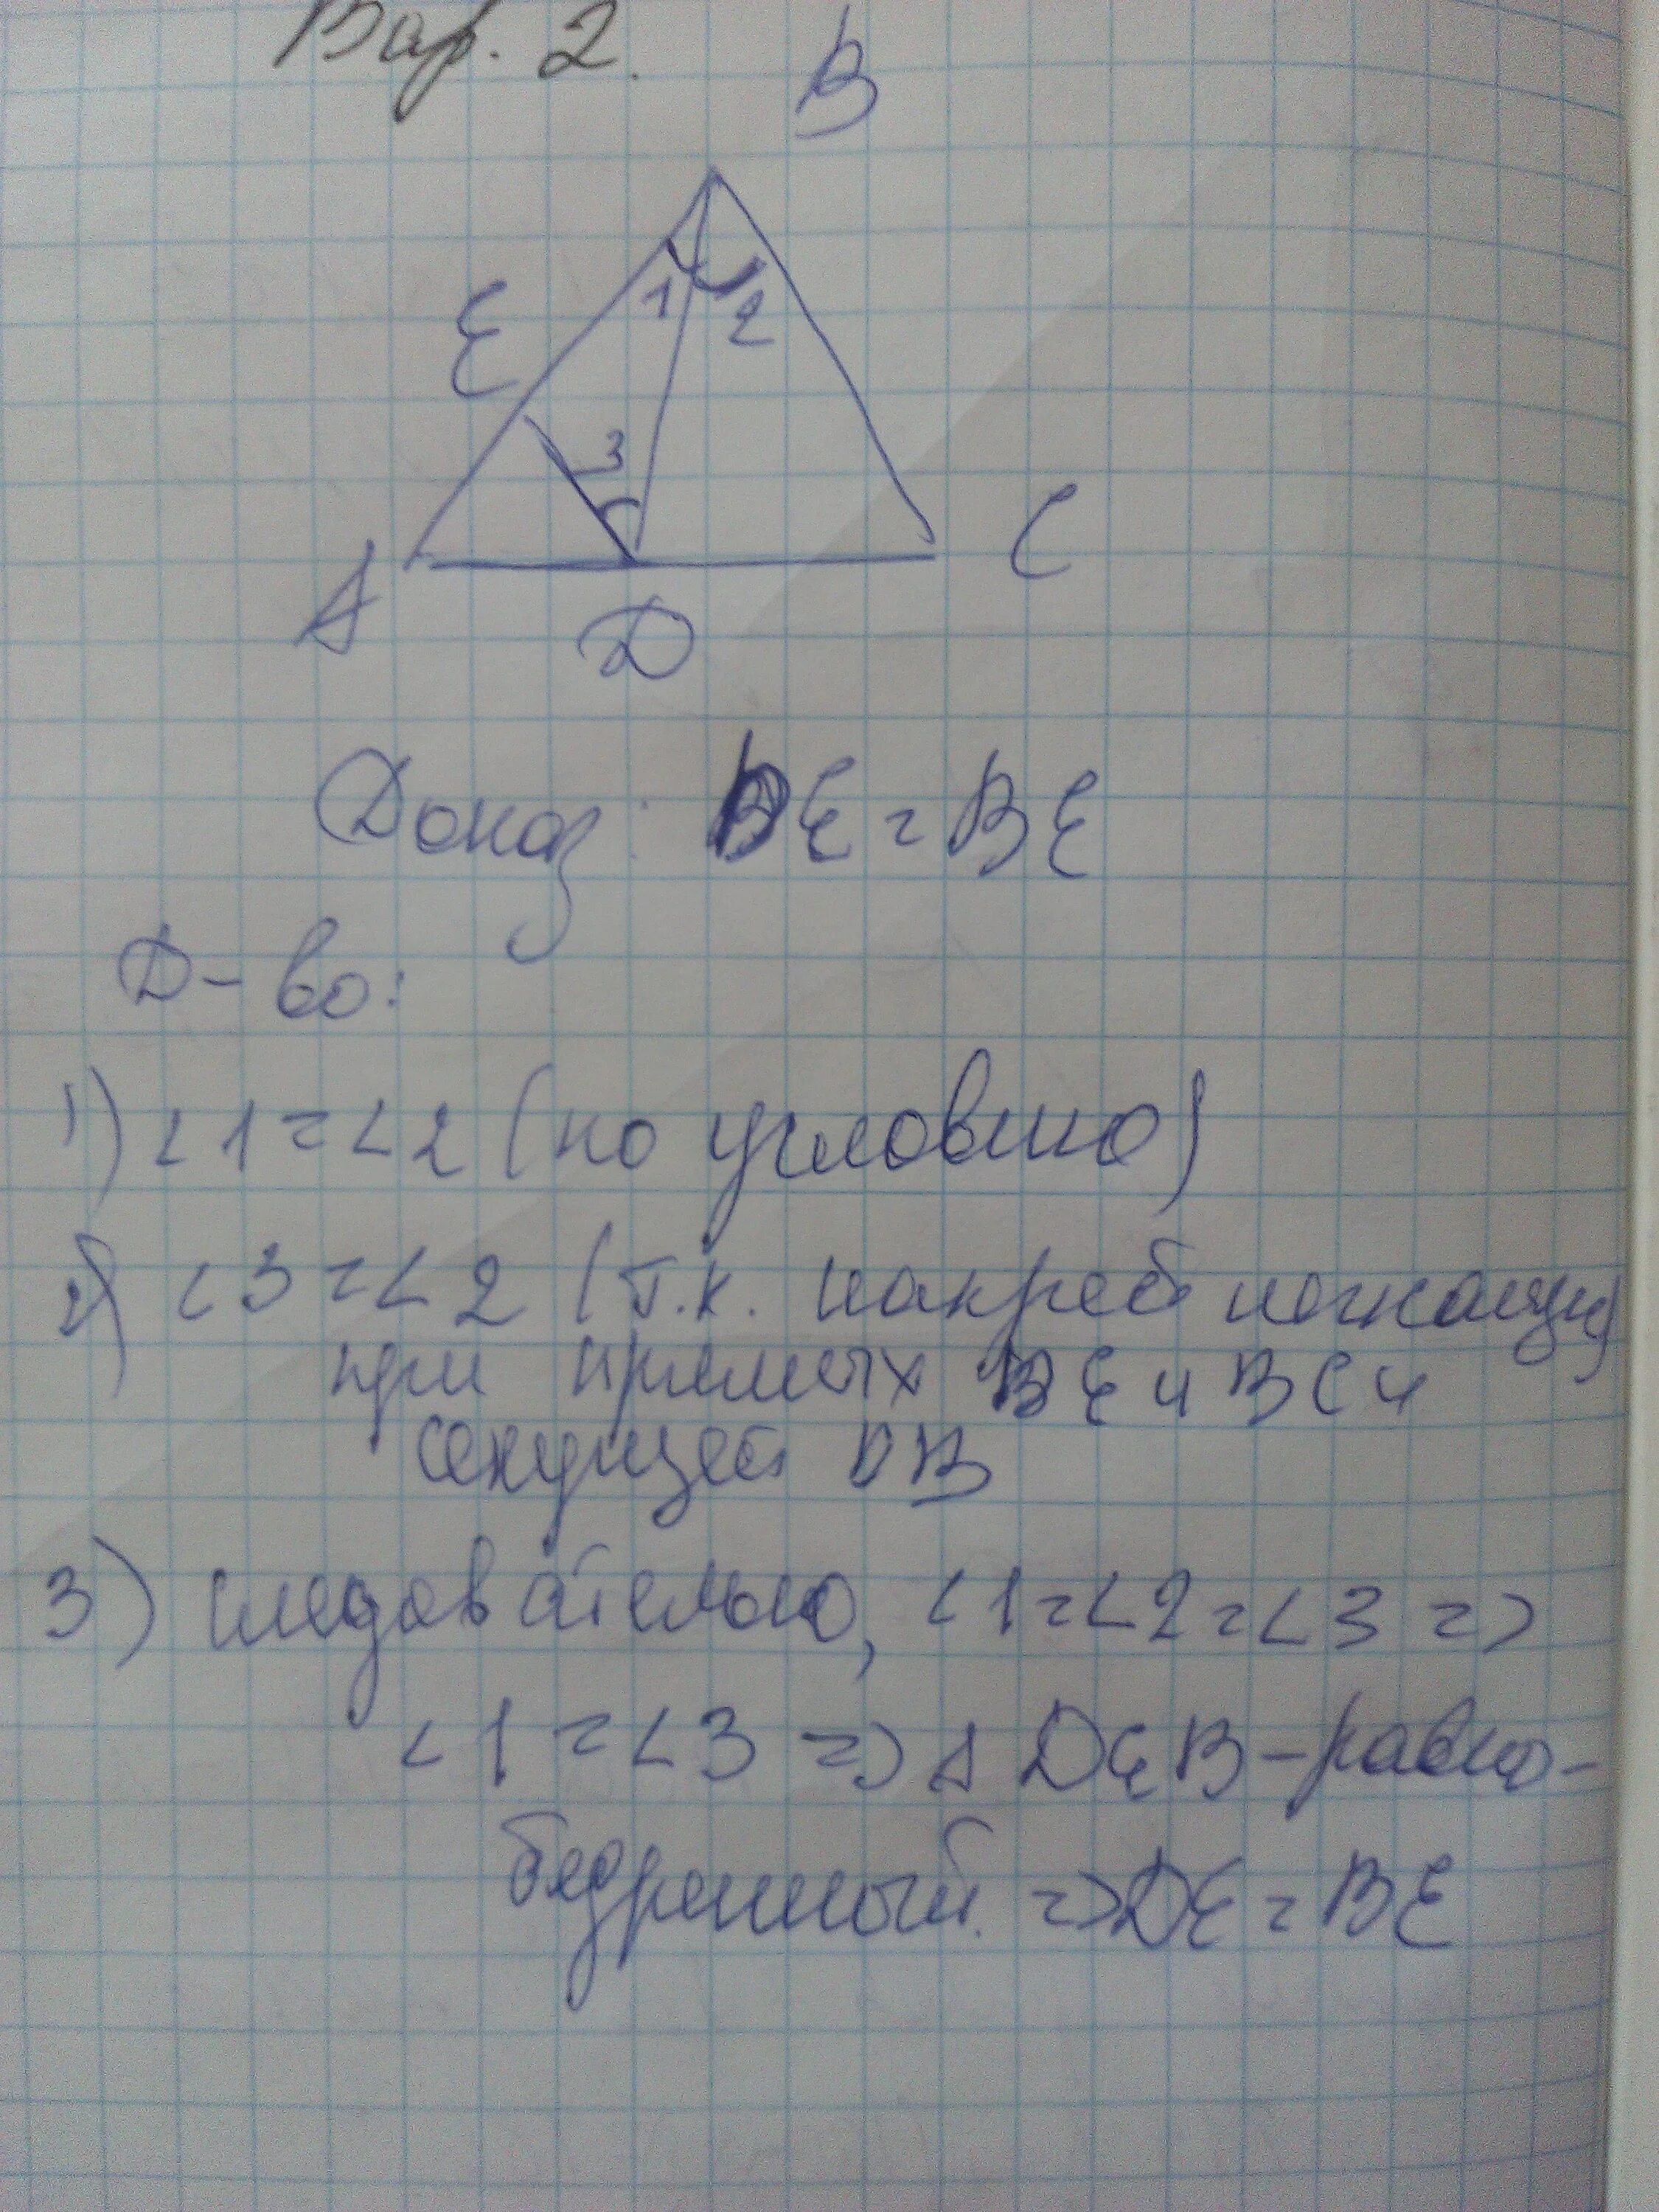 Вар. 2.
B
E
1 2
3
A
C
D
Доказ: DE = BE
Д-во:
1) <1 = <2 (по условию)
2) <3 = <2 (т.к. накрест лежащие
при прямых BE и BC и
секущей DB
3) следовательно, <1 = <2 = <3 =>
<1 = <3 => Δ DEB - равно-
бедренный. => DE = BE